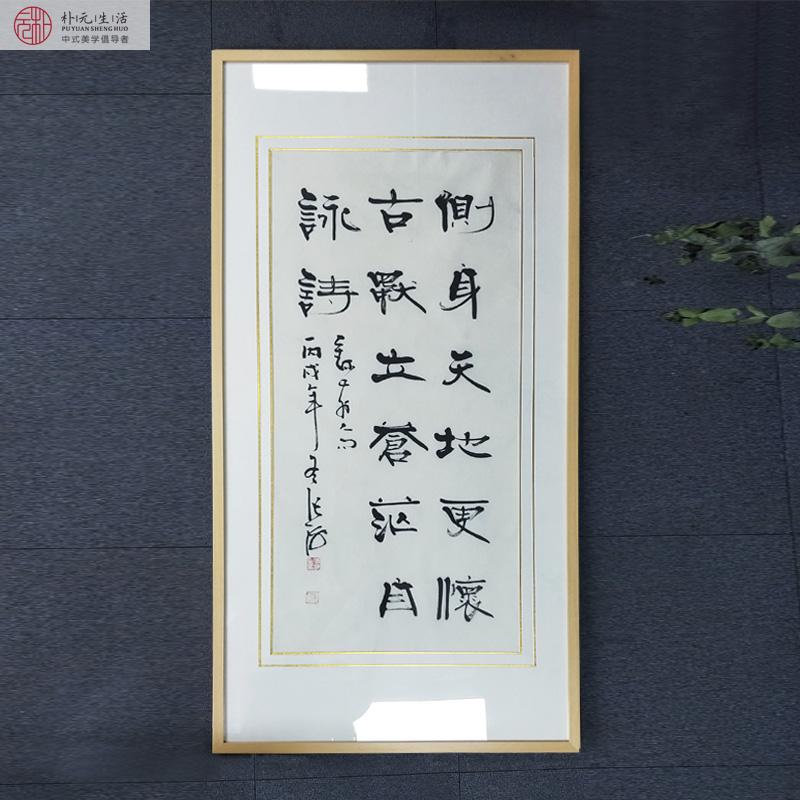 朴元生活
PU YUAN SHENG HUO
中式美学倡导者
側身天地更懷
古獨立蒼茫自
詠詩
丙戌年冬張海